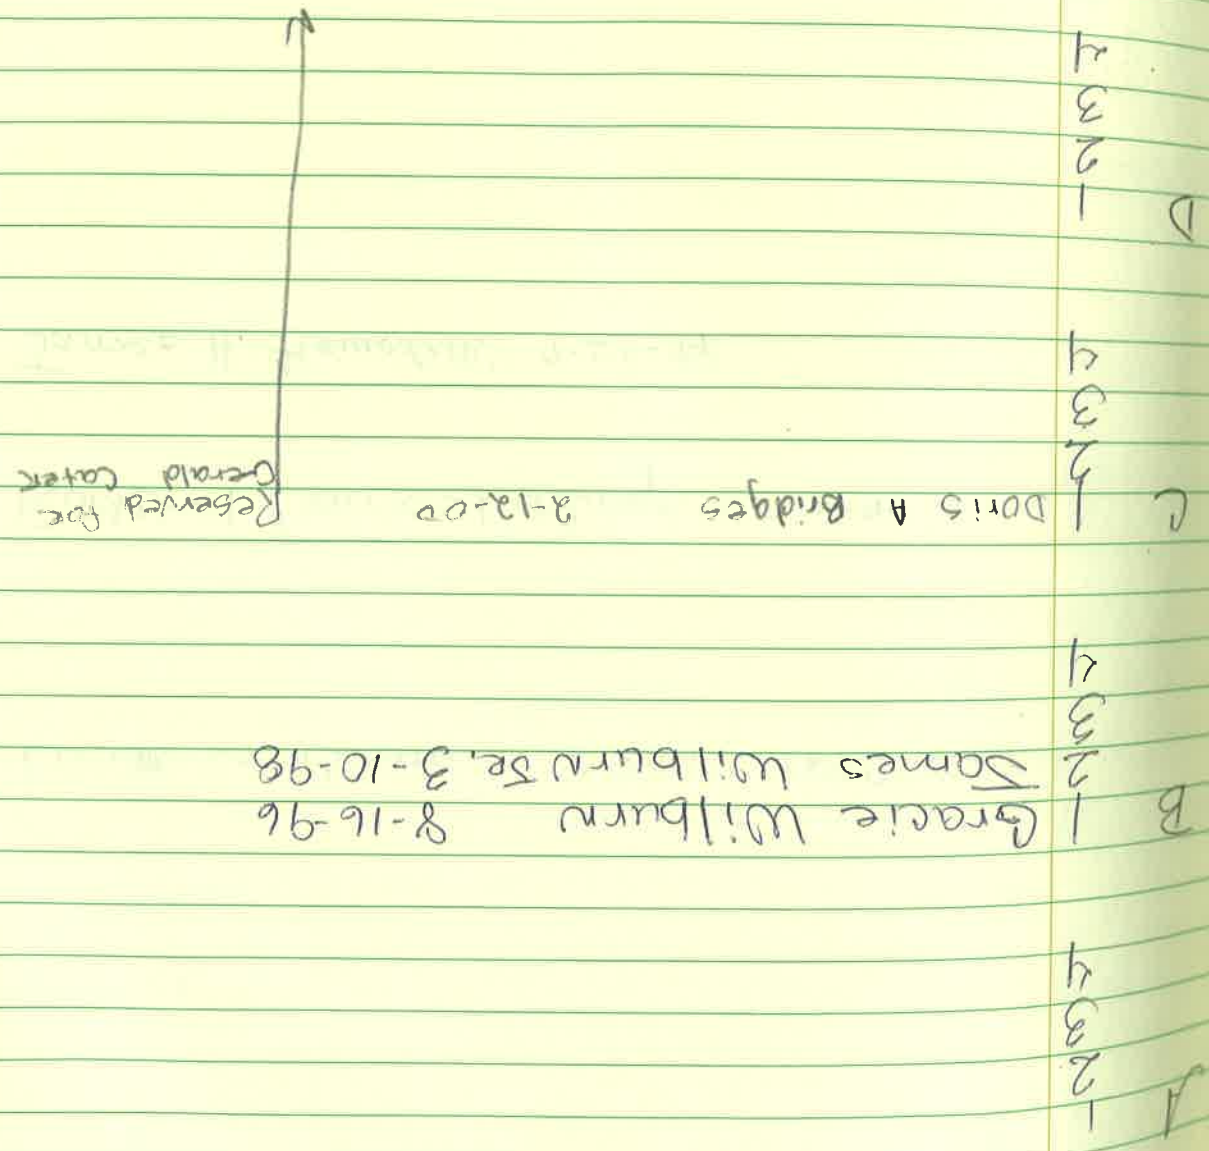 A 1
2
3
4
B 1 Gracie Wilburn 8-16-96
2 James Wilburn JR. 3-10-98
3
4
C 1 Doris A Bridges 2-12-00 Reserved for
2 Gerald Cater
3
4
D 1
2
3
4